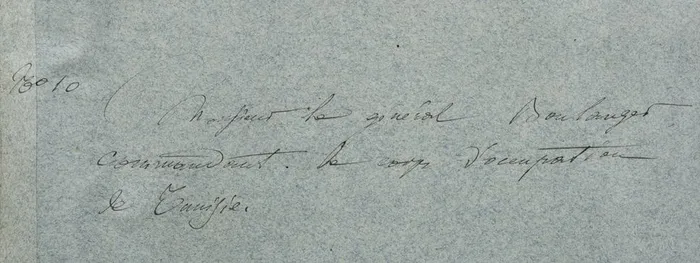 N° 10
Monsieur le général Boulanger
commandant le corps d'occupation
de Tunisie.